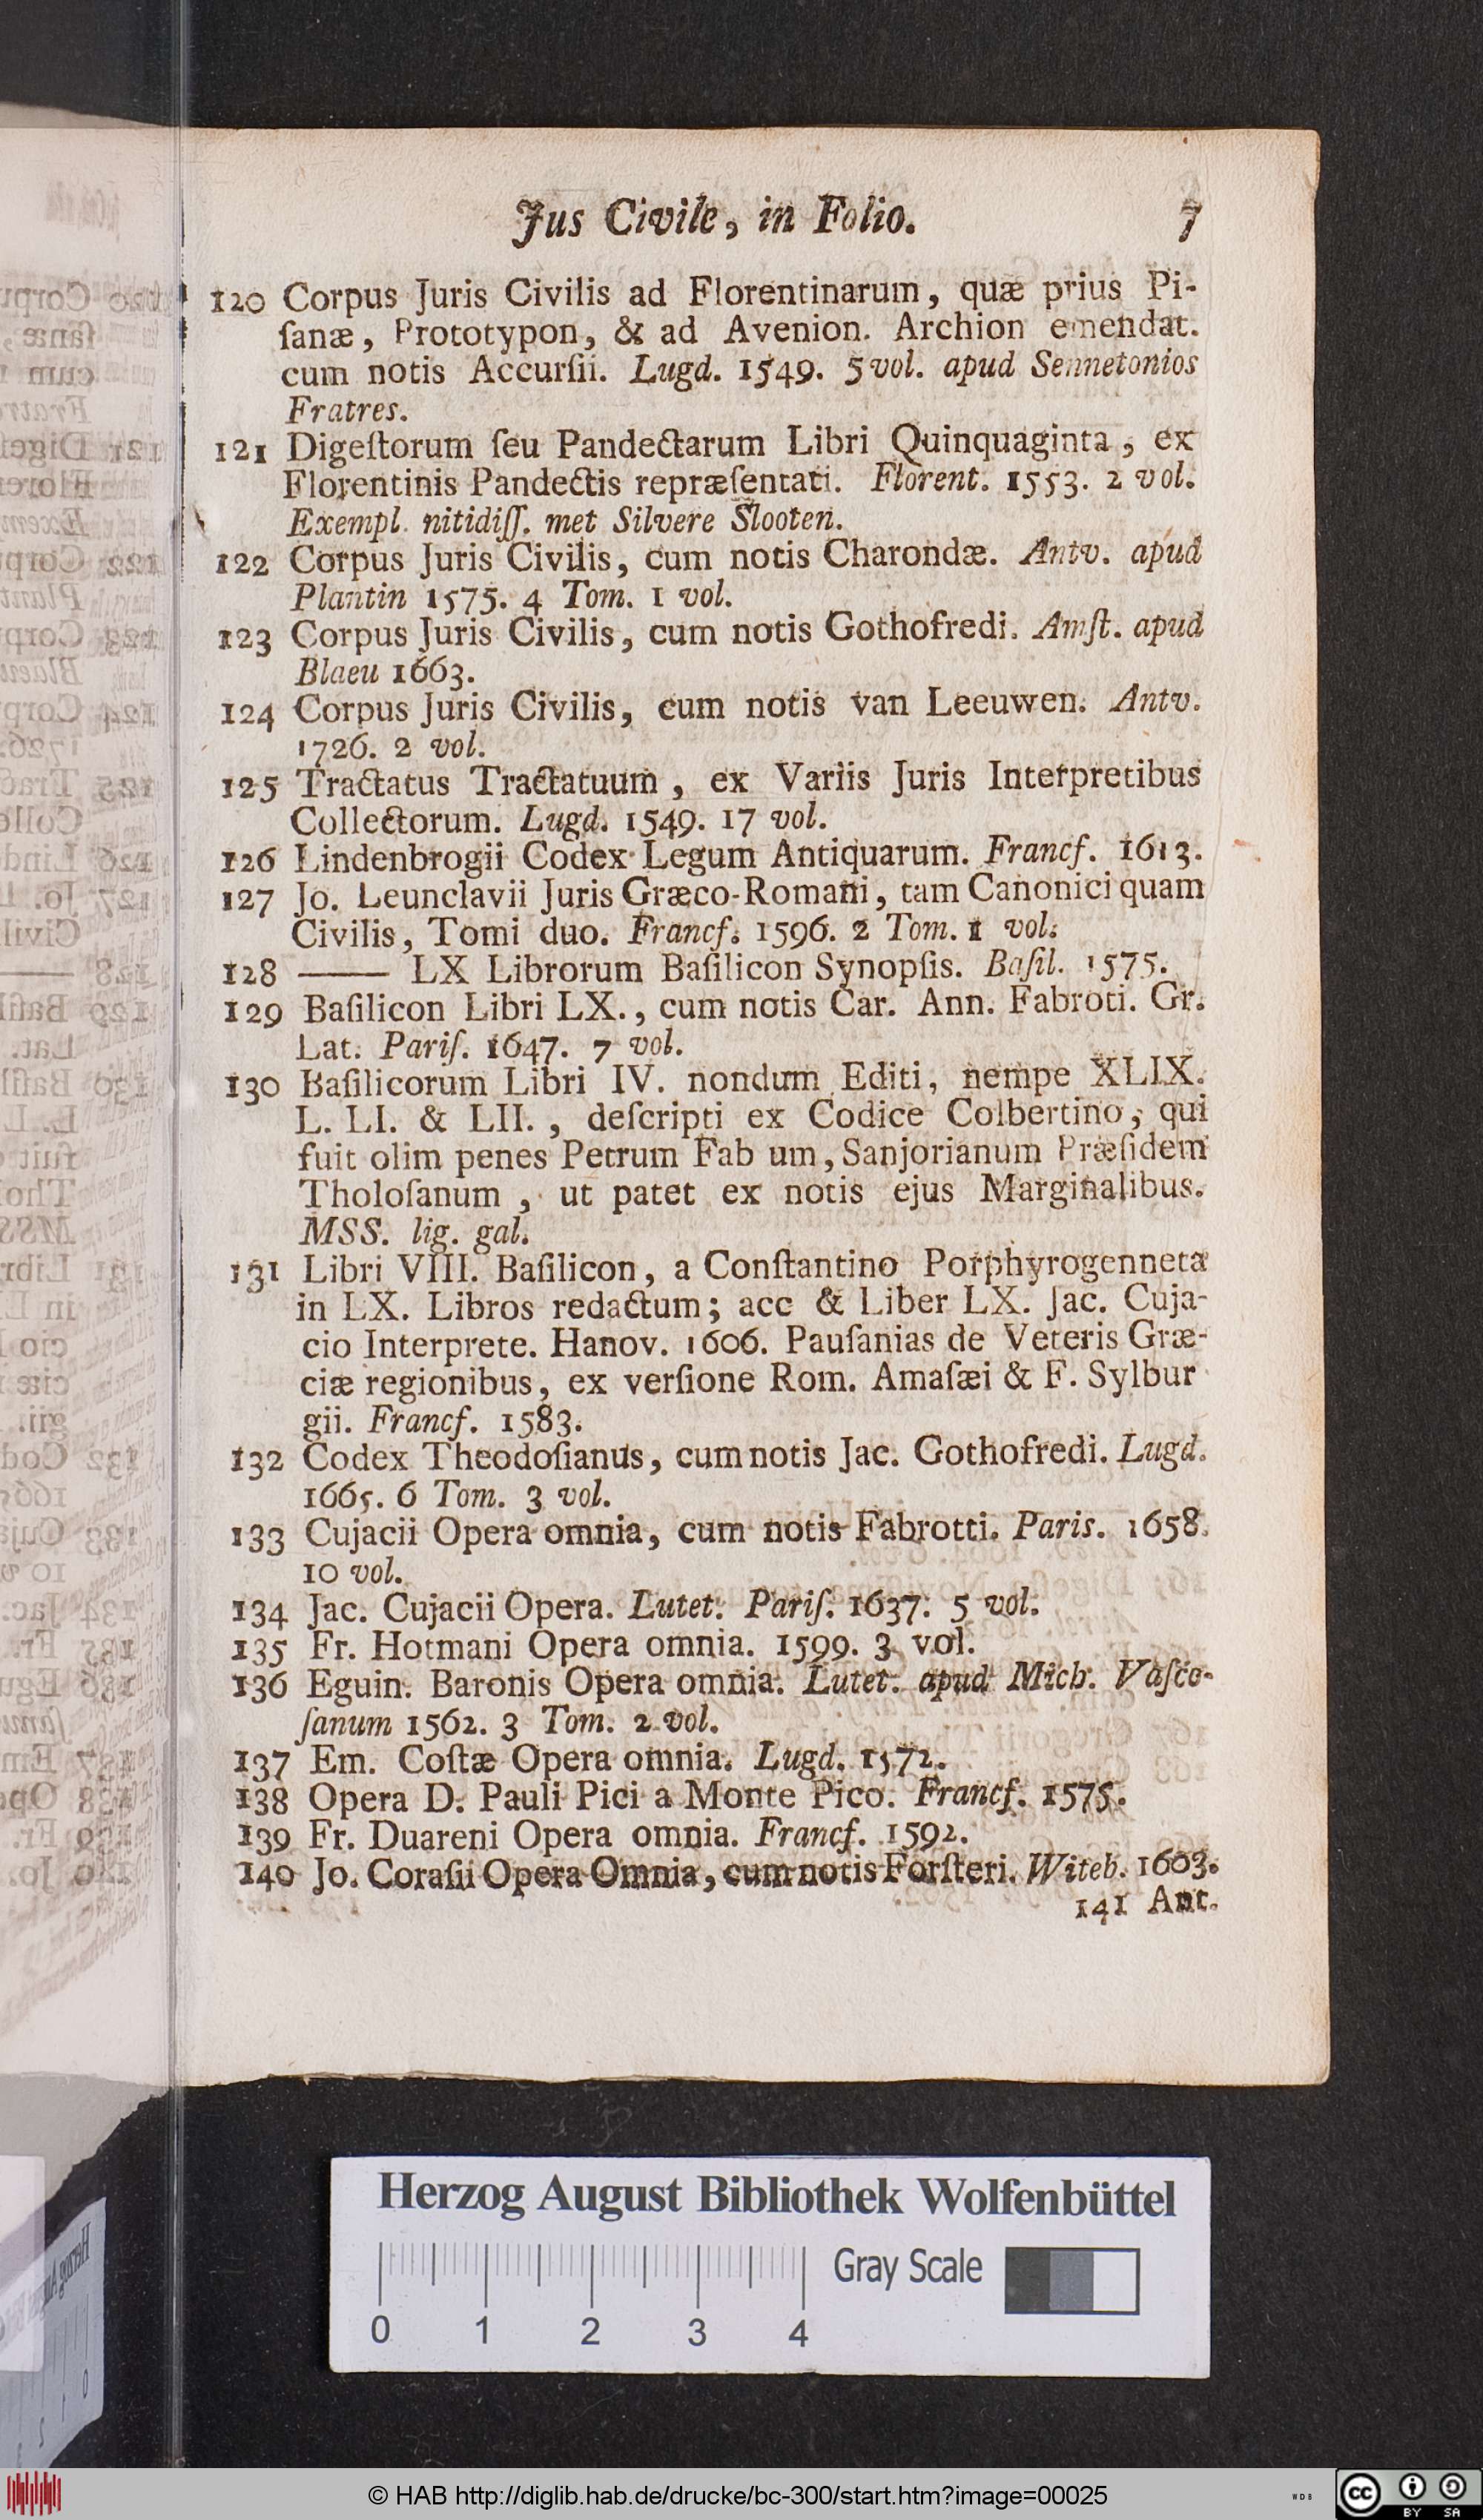 Jus Civile, in Folio. 7
120 Corpus Juris Civilis ad Florentinarum, quæ prius Pi-
ſanæ, Prototypon, & ad Avenion. Archion emendat.
cum notis Accurſii. Lugd. 1549. 5 vol. apud Sennetonios
Fratres.
121 Digeſtorum ſeu Pandectarum Libri Quinquaginta, ex
Florentinis Pandectis repræſentati. Florent. 1553. 2 vol.
Exempl. nitidiſſ. met Silvere Slooten.
122 Corpus Juris Civilis, cum notis Charondæ. Antv. apud
Plantin 1575. 4 Tom. 1 vol.
123 Corpus Juris Civilis, cum notis Gothofredi. Amſt. apud
Blaeu 1663.
124 Corpus Juris Civilis, cum notis van Leeuwen. Antv.
1726. 2 vol.
125 Tractatus Tractatuum, ex Variis Juris Interpretibus
Collectorum. Lugd. 1549. 17 vol.
126 Lindenbrogii Codex Legum Antiquarum. Francf. 1613.
127 Jo. Leunclavii Juris Græco-Romani, tam Canonici quam
Civilis, Tomi duo. Francf. 1596. 2 Tom. 1 vol.
128 —— LX Librorum Baſilicon Synopſis. Baſil. 1575.
129 Baſilicon Libri LX., cum notis Car. Ann. Fabroti. Gr.
Lat. Pariſ. 1647. 7 vol.
130 Baſilicorum Libri IV. nondum Editi, nempe XLIX.
L. LI. & LII., deſcripti ex Codice Colbertino, qui
fuit olim penes Petrum Fab um, Sanjorianum Præſidem
Tholoſanum, ut patet ex notis ejus Marginalibus.
MSS. lig. gal.
131 Libri VIII. Baſilicon, a Conſtantino Porphyrogenneta
in LX. Libros redactum; acc & Liber LX. Jac. Cuja-
cio Interprete. Hanov. 1606. Pauſanias de Veteris Græ-
ciæ regionibus, ex verſione Rom. Amaſæi & F. Sylbur
gii. Francf. 1583.
132 Codex Theodoſianus, cum notis Jac. Gothofredi. Lugd.
1665. 6 Tom. 3 vol.
133 Cujacii Opera omnia, cum notis Fabrotti. Paris. 1658.
10 vol.
134 Jac. Cujacii Opera. Lutet. Pariſ. 1637. 5 vol.
135 Fr. Hotmani Opera omnia. 1599. 3 vol.
136 Eguin. Baronis Opera omnia. Lutet. apud Mich. Vaſco-
ſanum 1562. 3 Tom. 2 vol.
137 Em. Coſtæ Opera omnia. Lugd. 1572.
138 Opera D. Pauli Pici a Monte Pico. Francf. 1575.
139 Fr. Duareni Opera omnia. Francf. 1592.
140 Jo. Coraſii Opera Omnia, cum notis Forſteri. Witeb. 1603.
141 Ant.
Herzog August Bibliothek Wolfenbüttel
Gray Scale
0 1 2 3 4
© HAB http://diglib.hab.de/drucke/bc-300/start.htm?image=00025
WDB
cc BY SA